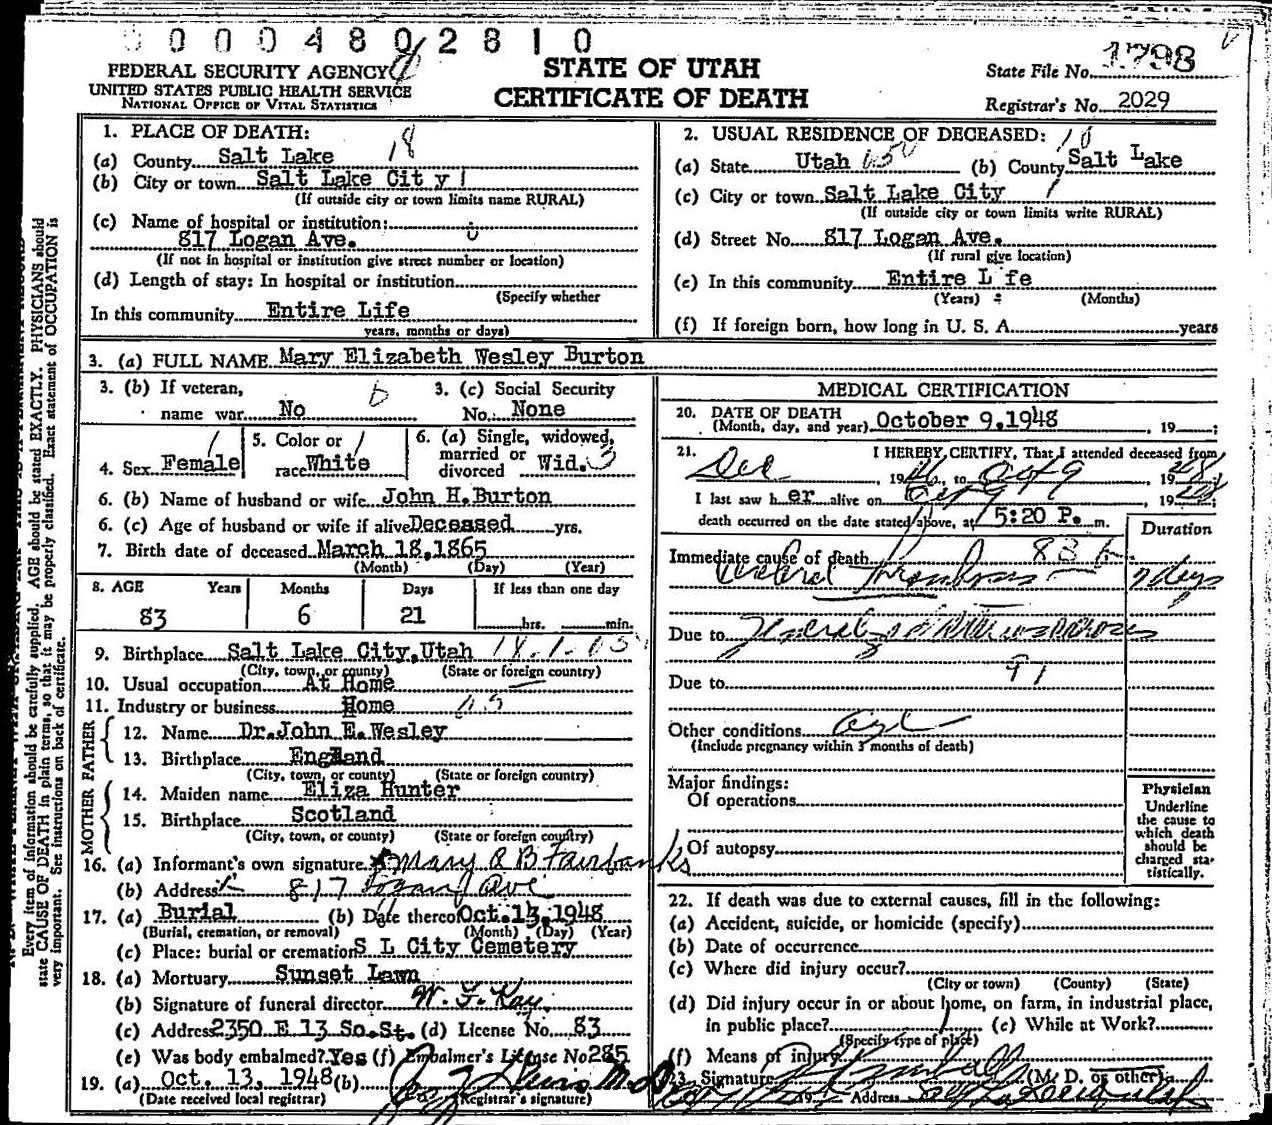 0000480 2810
FEDERAL SECURITY AGENCY
UNITED STATES PUBLIC HEALTH SERVICE
NATIONAL OFFICE OF VITAL STATISTICS
STATE OF UTAH
CERTIFICATE OF DEATH
State File No. 1798
Registrar's No. 2029
1. PLACE OF DEATH:
(a) County Salt Lake 18
(b) City or town Salt Lake Cit y 1
(If outside city or town limits name RURAL)
(c) Name of hospital or institution:
817 Logan Ave. 0
(If not in hospital or institution give street number or location)
(d) Length of stay: In hospital or institution
(Specify whether
In this community Entire Life
years, months or days)
2. USUAL RESIDENCE OF DECEASED: 18
(a) State Utah 650 (b) County Salt Lake
(c) City or town Salt Lake City 1
(If outside city or town limits write RURAL)
(d) Street No. 817 Logan Ave.
(If rural give location)
(e) In this community Entire L fe
(Years) : (Months)
(f) If foreign born, how long in U. S. A. years
3. (a) FULL NAME Mary Elizabeth Wesley Burton
3. (b) If veteran,
name war No
3. (c) Social Security
No. None
4. Sex Female 1
5. Color or
race White 1
6. (a) Single, widowed,
married or
divorced Wid. 3
6. (b) Name of husband or wife John H.Burton
6. (c) Age of husband or wife if alive Deceased yrs.
7. Birth date of deceased March 18,1865
(Month) (Day) (Year)
8. AGE Years Months Days If less than one day
83 6 21 hrs. min.
9. Birthplace Salt Lake City,Utah
(City, town, or county) (State or foreign country)
10. Usual occupation At Home
11. Industry or business Home
FATHER
12. Name Dr.John E.Wesley
13. Birthplace England
(City, town, or county) (State or foreign country)
MOTHER
14. Maiden name Eliza Hunter
15. Birthplace Scotland
(City, town, or county) (State or foreign country)
16. (a) Informant's own signature Mary R B Fairbanks
(b) Address 817 Logan Ave
17. (a) Burial (b) Date thereof Oct.13,1948
(Burial, cremation, or removal) (Month) (Day) (Year)
(c) Place: burial or cremation S L City Cemetery
18. (a) Mortuary Sunset Lawn
(b) Signature of funeral director W. F. Kay
(c) Address 2350 E 13 So.St. (d) License No. 83
(e) Was body embalmed? Yes (f) Embalmer's License No 285
19. (a) Oct. 13, 1948 (b)
(Date received local registrar) (Registrar's signature)
MEDICAL CERTIFICATION
20. DATE OF DEATH
(Month, day, and year) October 9,1948, 19 ;
21. I HEREBY CERTIFY, That I attended deceased from
Dec, 1946, to Oct 9, 1948;
I last saw h er alive on Oct 9, 1948
death occurred on the date stated above, at 5:20 P. m.
Duration
Immediate cause of death 83 b
Cerebral Thrombosis 7 days
Due to Generalized Arteriosclerosis
Due to 97
Other conditions age
(Include pregnancy within 3 months of death)
Major findings:
Of operations
Of autopsy
Physician
Underline
the cause to
which death
should be
charged sta-
tistically.
22. If death was due to external causes, fill in the following:
(a) Accident, suicide, or homicide (specify)
(b) Date of occurrence
(c) Where did injury occur?
(City or town) (County) (State)
(d) Did injury occur in or about home, on farm, in industrial place,
in public place? (e) While at Work?
(Specify type of place)
(f) Means of injury
23. Signature (M. D. or other)
Address
Every item of information should be carefully supplied. AGE should be stated EXACTLY. PHYSICIANS should
state CAUSE OF DEATH in plain terms, so that it may be properly classified. Exact statement of OCCUPATION is
very important. See instructions on back of certificate.